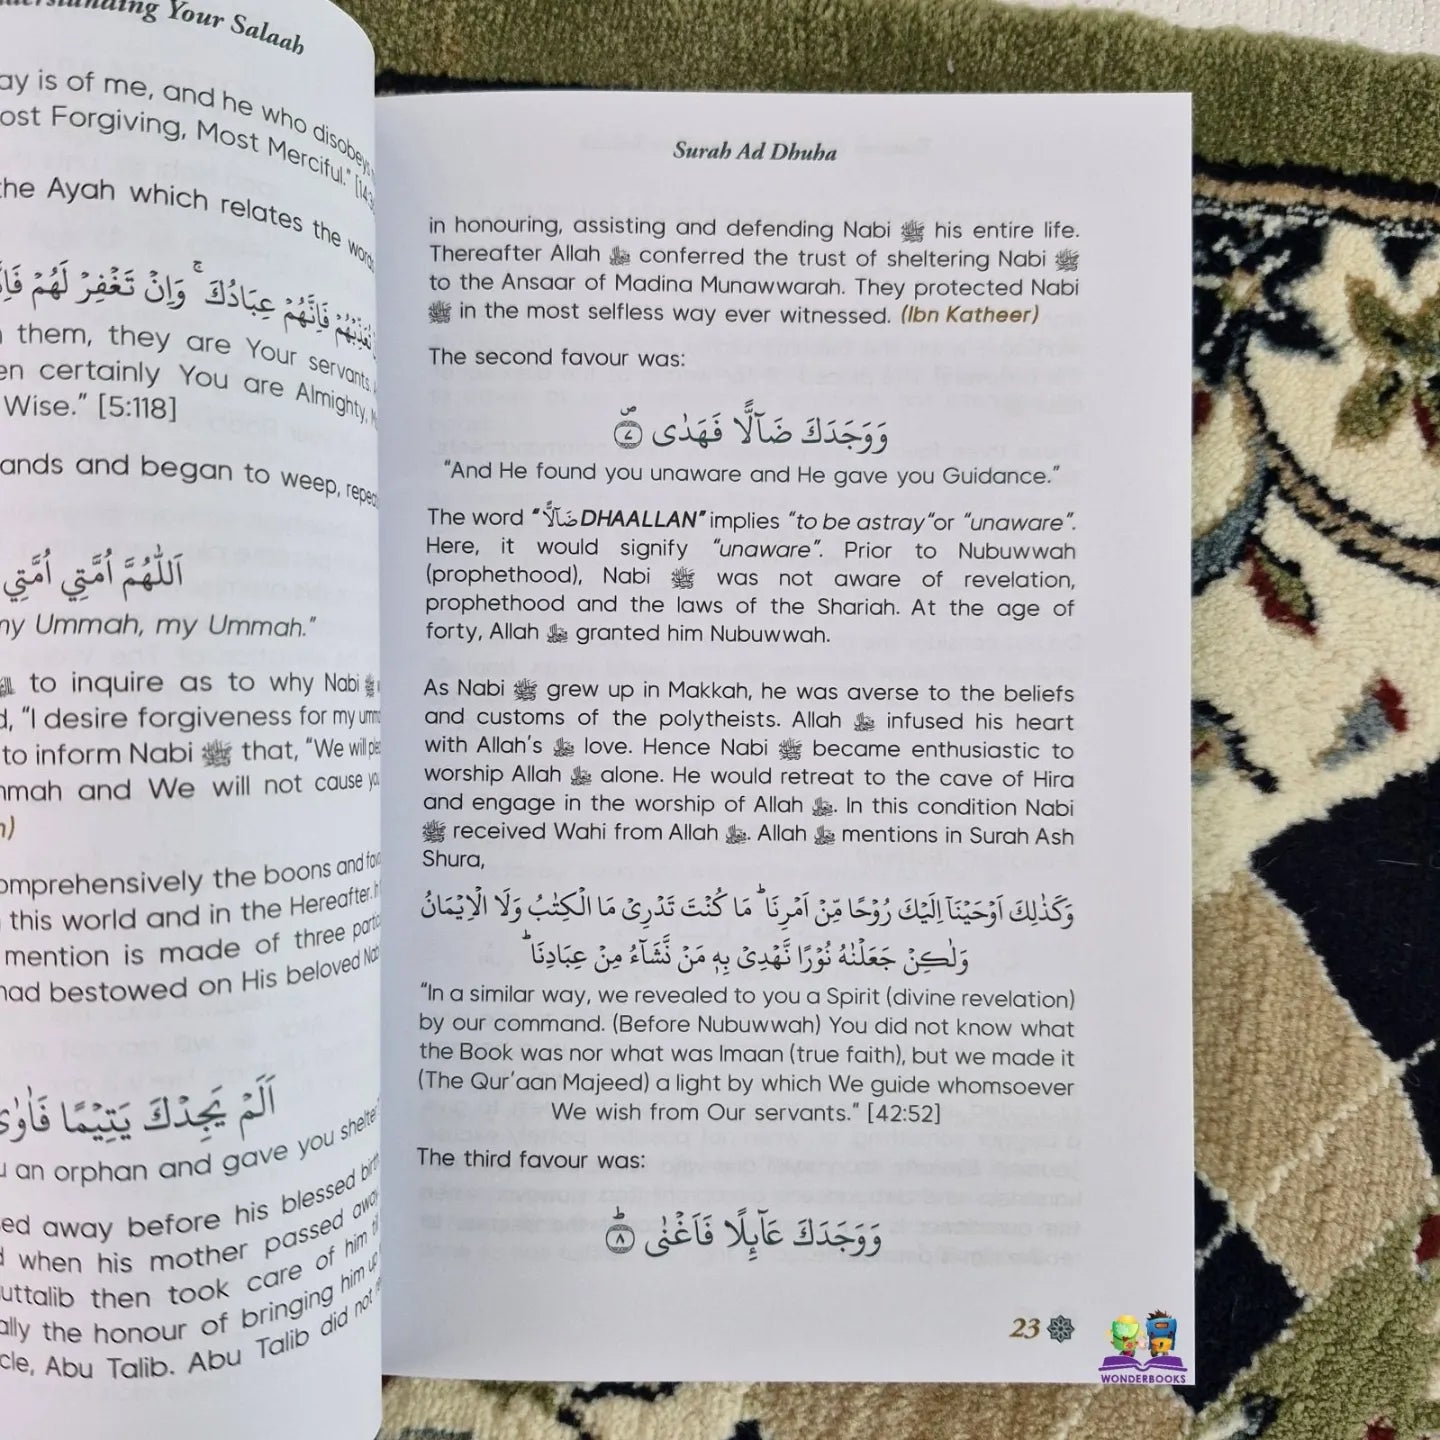 Understanding Your Salaah
ay is of me, and he who disobeys
ost Forgiving, Most Merciful." [14:3
the Ayah which relates the words
فَاِنَّهُمْ عِبَادُكَ ۚ وَاِنْ تَغْفِرْ لَهُمْ
them, they are Your servants.
en certainly You are Almighty,
Wise." [5:118]
ands and began to weep, repea
اَللّٰهُمَّ اُمَّتِي اُمَّتِي
my Ummah, my Ummah."
to inquire as to why Nabi ﷺ
d, "I desire forgiveness for my umm
to inform Nabi ﷺ that, "We will
mmah and We will not cause
omprehensively the boons and
this world and in the Hereafter.
mention is made of three
had bestowed on His beloved
اَلَمْ يَجِدْكَ يَتِيْمًا فَاٰوٰى
u an orphan and gave you shelter
ed away before his blessed birth
when his mother passed away
uttalib then took care of him
ally the honour of bringing him up
cle, Abu Talib. Abu Talib did not
Surah Ad Dhuha
in honouring, assisting and defending Nabi ﷺ his entire life.
Thereafter Allah ﷻ conferred the trust of sheltering Nabi ﷺ
to the Ansaar of Madina Munawwarah. They protected Nabi
ﷺ in the most selfless way ever witnessed. (Ibn Katheer)
The second favour was:
وَوَجَدَكَ ضَآلًّا فَهَدٰى ۪ ۝٧
"And He found you unaware and He gave you Guidance."
The word "ضَآلًّا DHAALLAN" implies "to be astray"or "unaware".
Here, it would signify "unaware". Prior to Nubuwwah
(prophethood), Nabi ﷺ was not aware of revelation,
prophethood and the laws of the Shariah. At the age of
forty, Allah ﷻ granted him Nubuwwah.
As Nabi ﷺ grew up in Makkah, he was averse to the beliefs
and customs of the polytheists. Allah ﷻ infused his heart
with Allah's ﷻ love. Hence Nabi ﷺ became enthusiastic to
worship Allah ﷻ alone. He would retreat to the cave of Hira
and engage in the worship of Allah ﷻ. In this condition Nabi
ﷺ received Wahi from Allah ﷻ. Allah ﷻ mentions in Surah Ash
Shura,
وَكَذٰلِكَ اَوْحَيْنَآ اِلَيْكَ رُوْحًا مِّنْ اَمْرِنَا ؕ مَا كُنْتَ تَدْرِيْ مَا الْكِتٰبُ وَلَا الْاِيْمَانُ
وَلٰكِنْ جَعَلْنٰهُ نُوْرًا نَّهْدِيْ بِهٖ مَنْ نَّشَآءُ مِنْ عِبَادِنَا ؕ
"In a similar way, we revealed to you a Spirit (divine revelation)
by our command. (Before Nubuwwah) You did not know what
the Book was nor what was Imaan (true faith), but we made it
(The Qur'aan Majeed) a light by which We guide whomsoever
We wish from Our servants." [42:52]
The third favour was:
وَوَجَدَكَ عَآئِلًا فَاَغْنٰى ؕ ۝٨
23
WONDERBOOKS